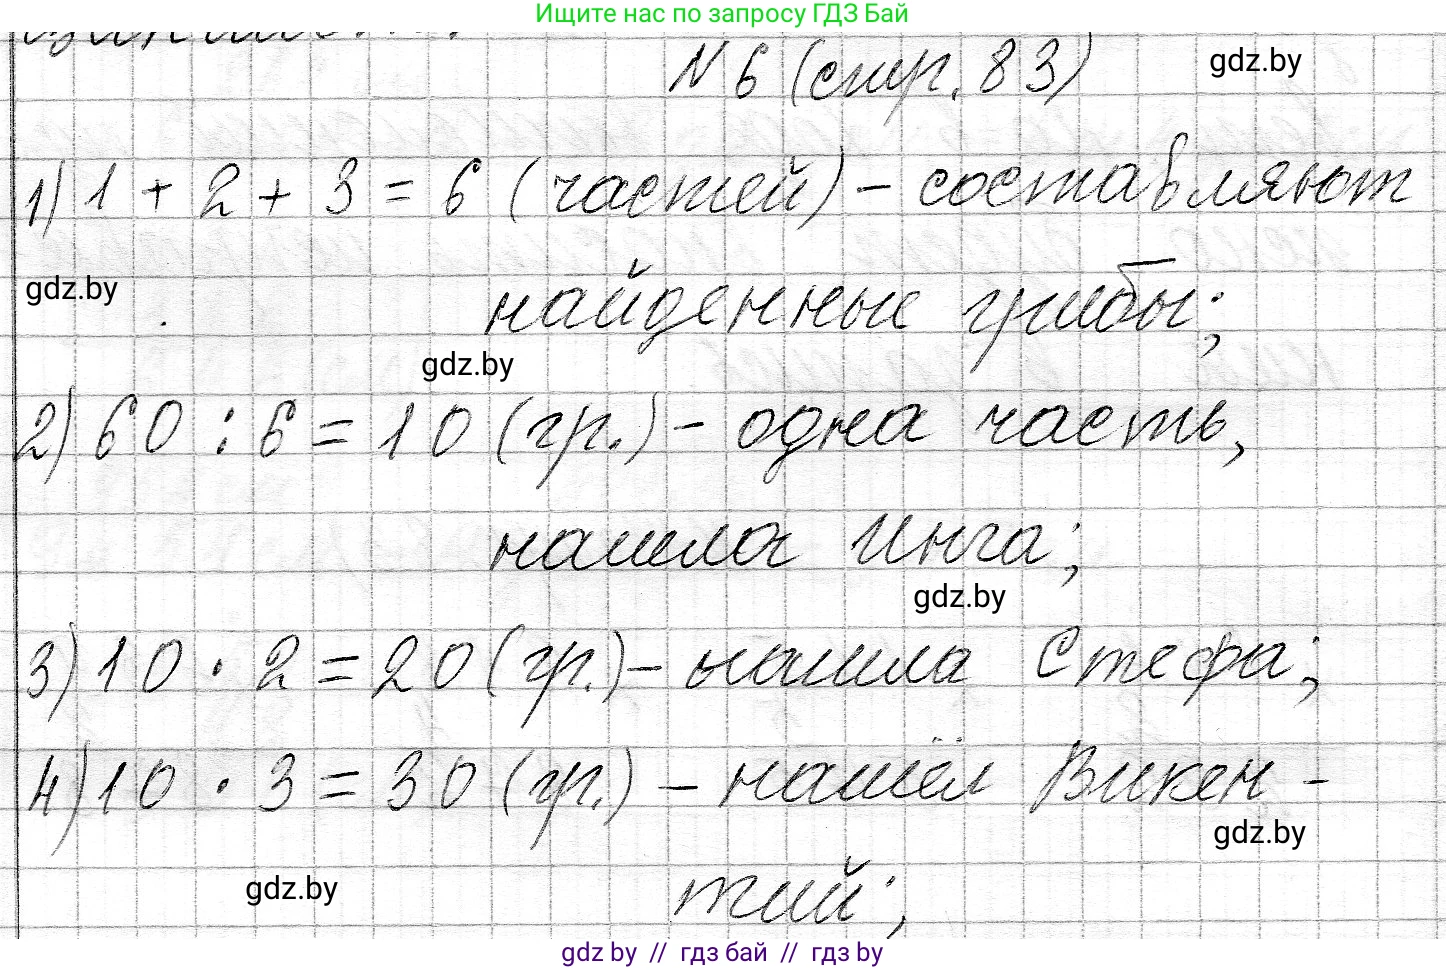 Ищите нас по запросу ГДЗ Бай
№6 (стр. 83)
gdz.by
1) 1 + 2 + 3 = 6 (частей) – составляют
gdz.by
найденные грибы;
gdz.by
2) 60 : 6 = 10 (гр.) – одна часть,
нашла Инга;
gdz.by
3) 10 · 2 = 20 (гр.) – нашла Стефа;
4) 10 · 3 = 30 (гр.) – нашёл Викен-
gdz.by
gdz.by
тий;
gdz by // гдз бай // гдз by